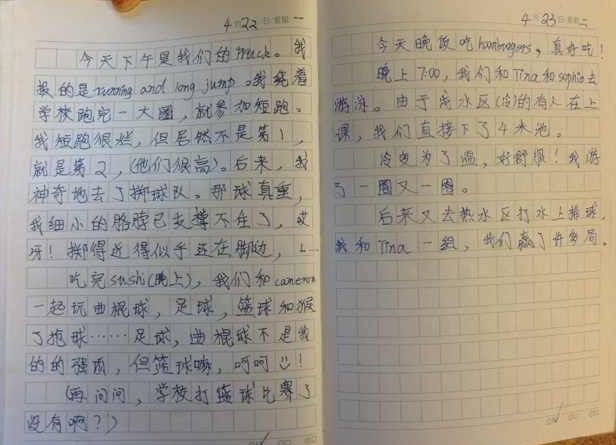 4月22日星期一
今天下午是我们的track。我
报的是running and long jump。我绕着
学校跑完一大圈，就参加短跑。
我短跑很烂，但居然不是第1，
就是第2，(他们很高)。后来，我
神奇地去了掷球队。那球真重，
我细小的胳膊已支撑不住了，哎
呀！掷得近得似乎还在脚边，
吃完sushi(晚上)，我们和cameron
一起玩曲棍球，足球，篮球和
了抱球……足球，曲棍球不是我
的的强项，但篮球嘛，呵呵！
(再问问，学校打篮球比赛了
没有啊？)
4月23日星期二
今天晚饭吃hamburgers，真好吃！
晚上7:00，我们和Tina和sophie去
游泳。由于浅水区(冷)的有人在上
课，我们直接下了4米池。
冷也为了温，好舒服！我游
了一圈又一圈。
后来又去热水区打水上排球，
我和Tina一组，我们赢了许多局。